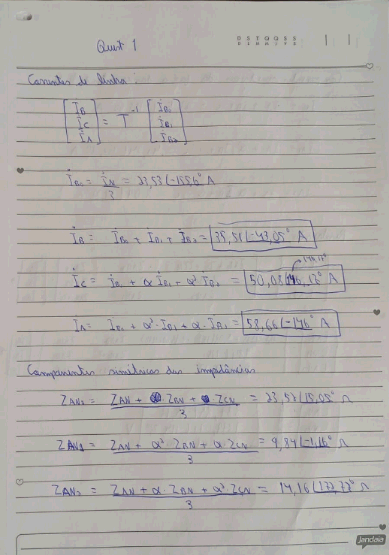 Quest 1
D S T Q Q S S
Correntes de linha
[İB İC İA] = T⁻¹ [İB₀ İB₁ İB₂]
İB₀ = İN / 3 = 23,53 ∠-155,6° A
İB = İB₀ + İB₁ + İB₂ = 35,51 ∠-49,05° A
İC = İB₀ + α İB₁ + α² İB₂ = 50,08 A
İA = İB₀ + α² · İB₁ + α · İB₂ = 58,66 ∠-146° A
Componentes simétricas das impedâncias
ZAN₀ = ZAN + ZBN + ZCN / 3 = 23,53 ∠15,05° Ω
ZAN₁ = ZAN + α² ZBN + α ZCN / 3 = 9,84 Ω
ZAN₂ = ZAN + α ZBN + α² ZCN / 3 = 14,16 Ω
jandaia